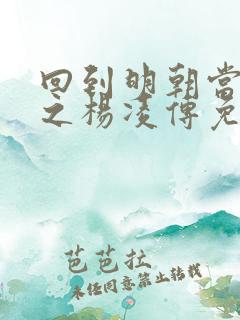 回到明朝当
之杨凌传免
芭芭拉
未经同意禁止转载